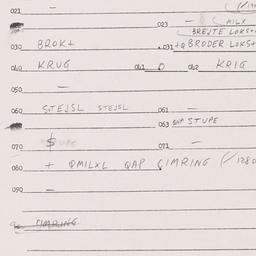 021 —
023 — MILX
BREJTE LOKS+
030 BROK+ 031 +Q BRODER LOKS+
040 KRUG 041 O 042 KRIG
050 —
060 STEJSL STEJSL 061 —
063 STUPE
070 $ 071 —
080 + QMILXL QAP CIMRING (✓1280
090 —
CIMRING